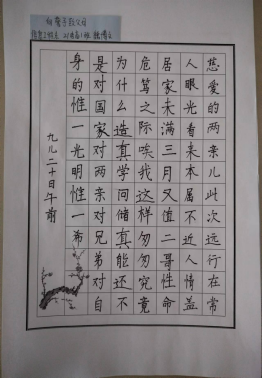 向警予致父母
慈爱的两亲儿此次远行在常
人眼光看来本属不近人情盖
居家未满三月又值二哥性命
危笃之际唉我这样匆匆究竟
为什么造真学问储真能还不
是对国家对两亲对兄弟对自
身的惟一光明惟一希
九儿二十日午前